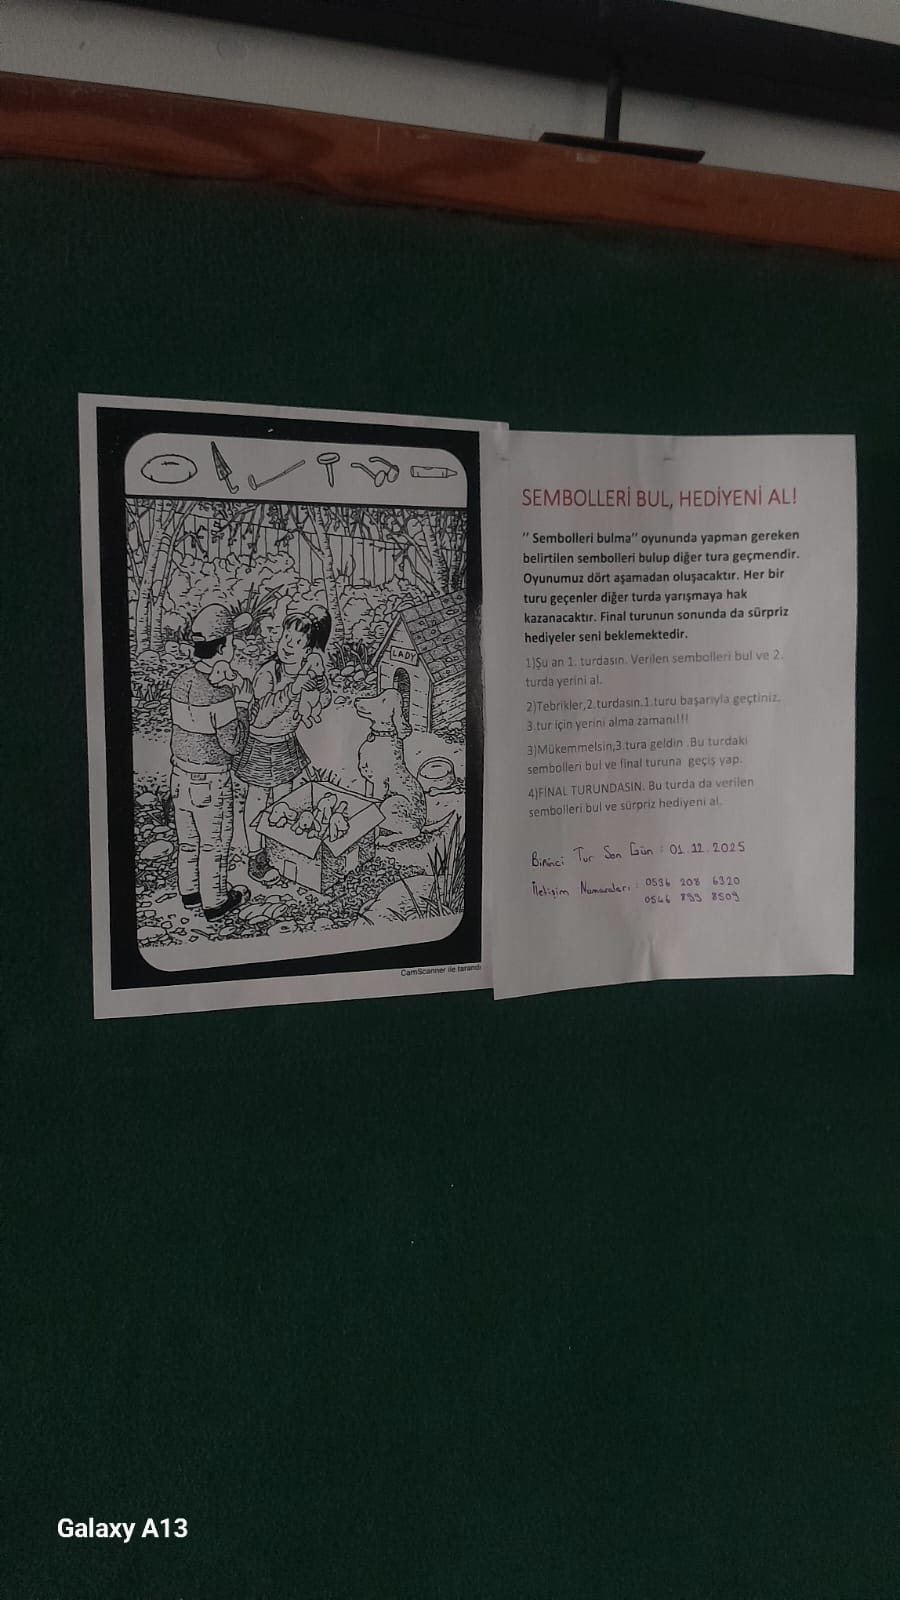 LADY
CamScanner ile tarandı
SEMBOLLERİ BUL, HEDİYENİ AL!
" Sembolleri bulma" oyununda yapman gereken
belirtilen sembolleri bulup diğer tura geçmendir.
Oyunumuz dört aşamadan oluşacaktır. Her bir
turu geçenler diğer turda yarışmaya hak
kazanacaktır. Final turunun sonunda da sürpriz
hediyeler seni beklemektedir.
1)Şu an 1. turdasın. Verilen sembolleri bul ve 2.
turda yerini al.
2)Tebrikler,2.turdasın.1.turu başarıyla geçtiniz.
3.tur için yerini alma zamanı!!!
3)Mükemmelsin,3.tura geldin .Bu turdaki
sembolleri bul ve final turuna geçiş yap.
4)FİNAL TURUNDASIN. Bu turda da verilen
sembolleri bul ve sürpriz hediyeni al.
Birinci Tur Son Gün : 01.12.2025
İletişim Numaraları : 0536 208 6320
0546 899 8509
Galaxy A13